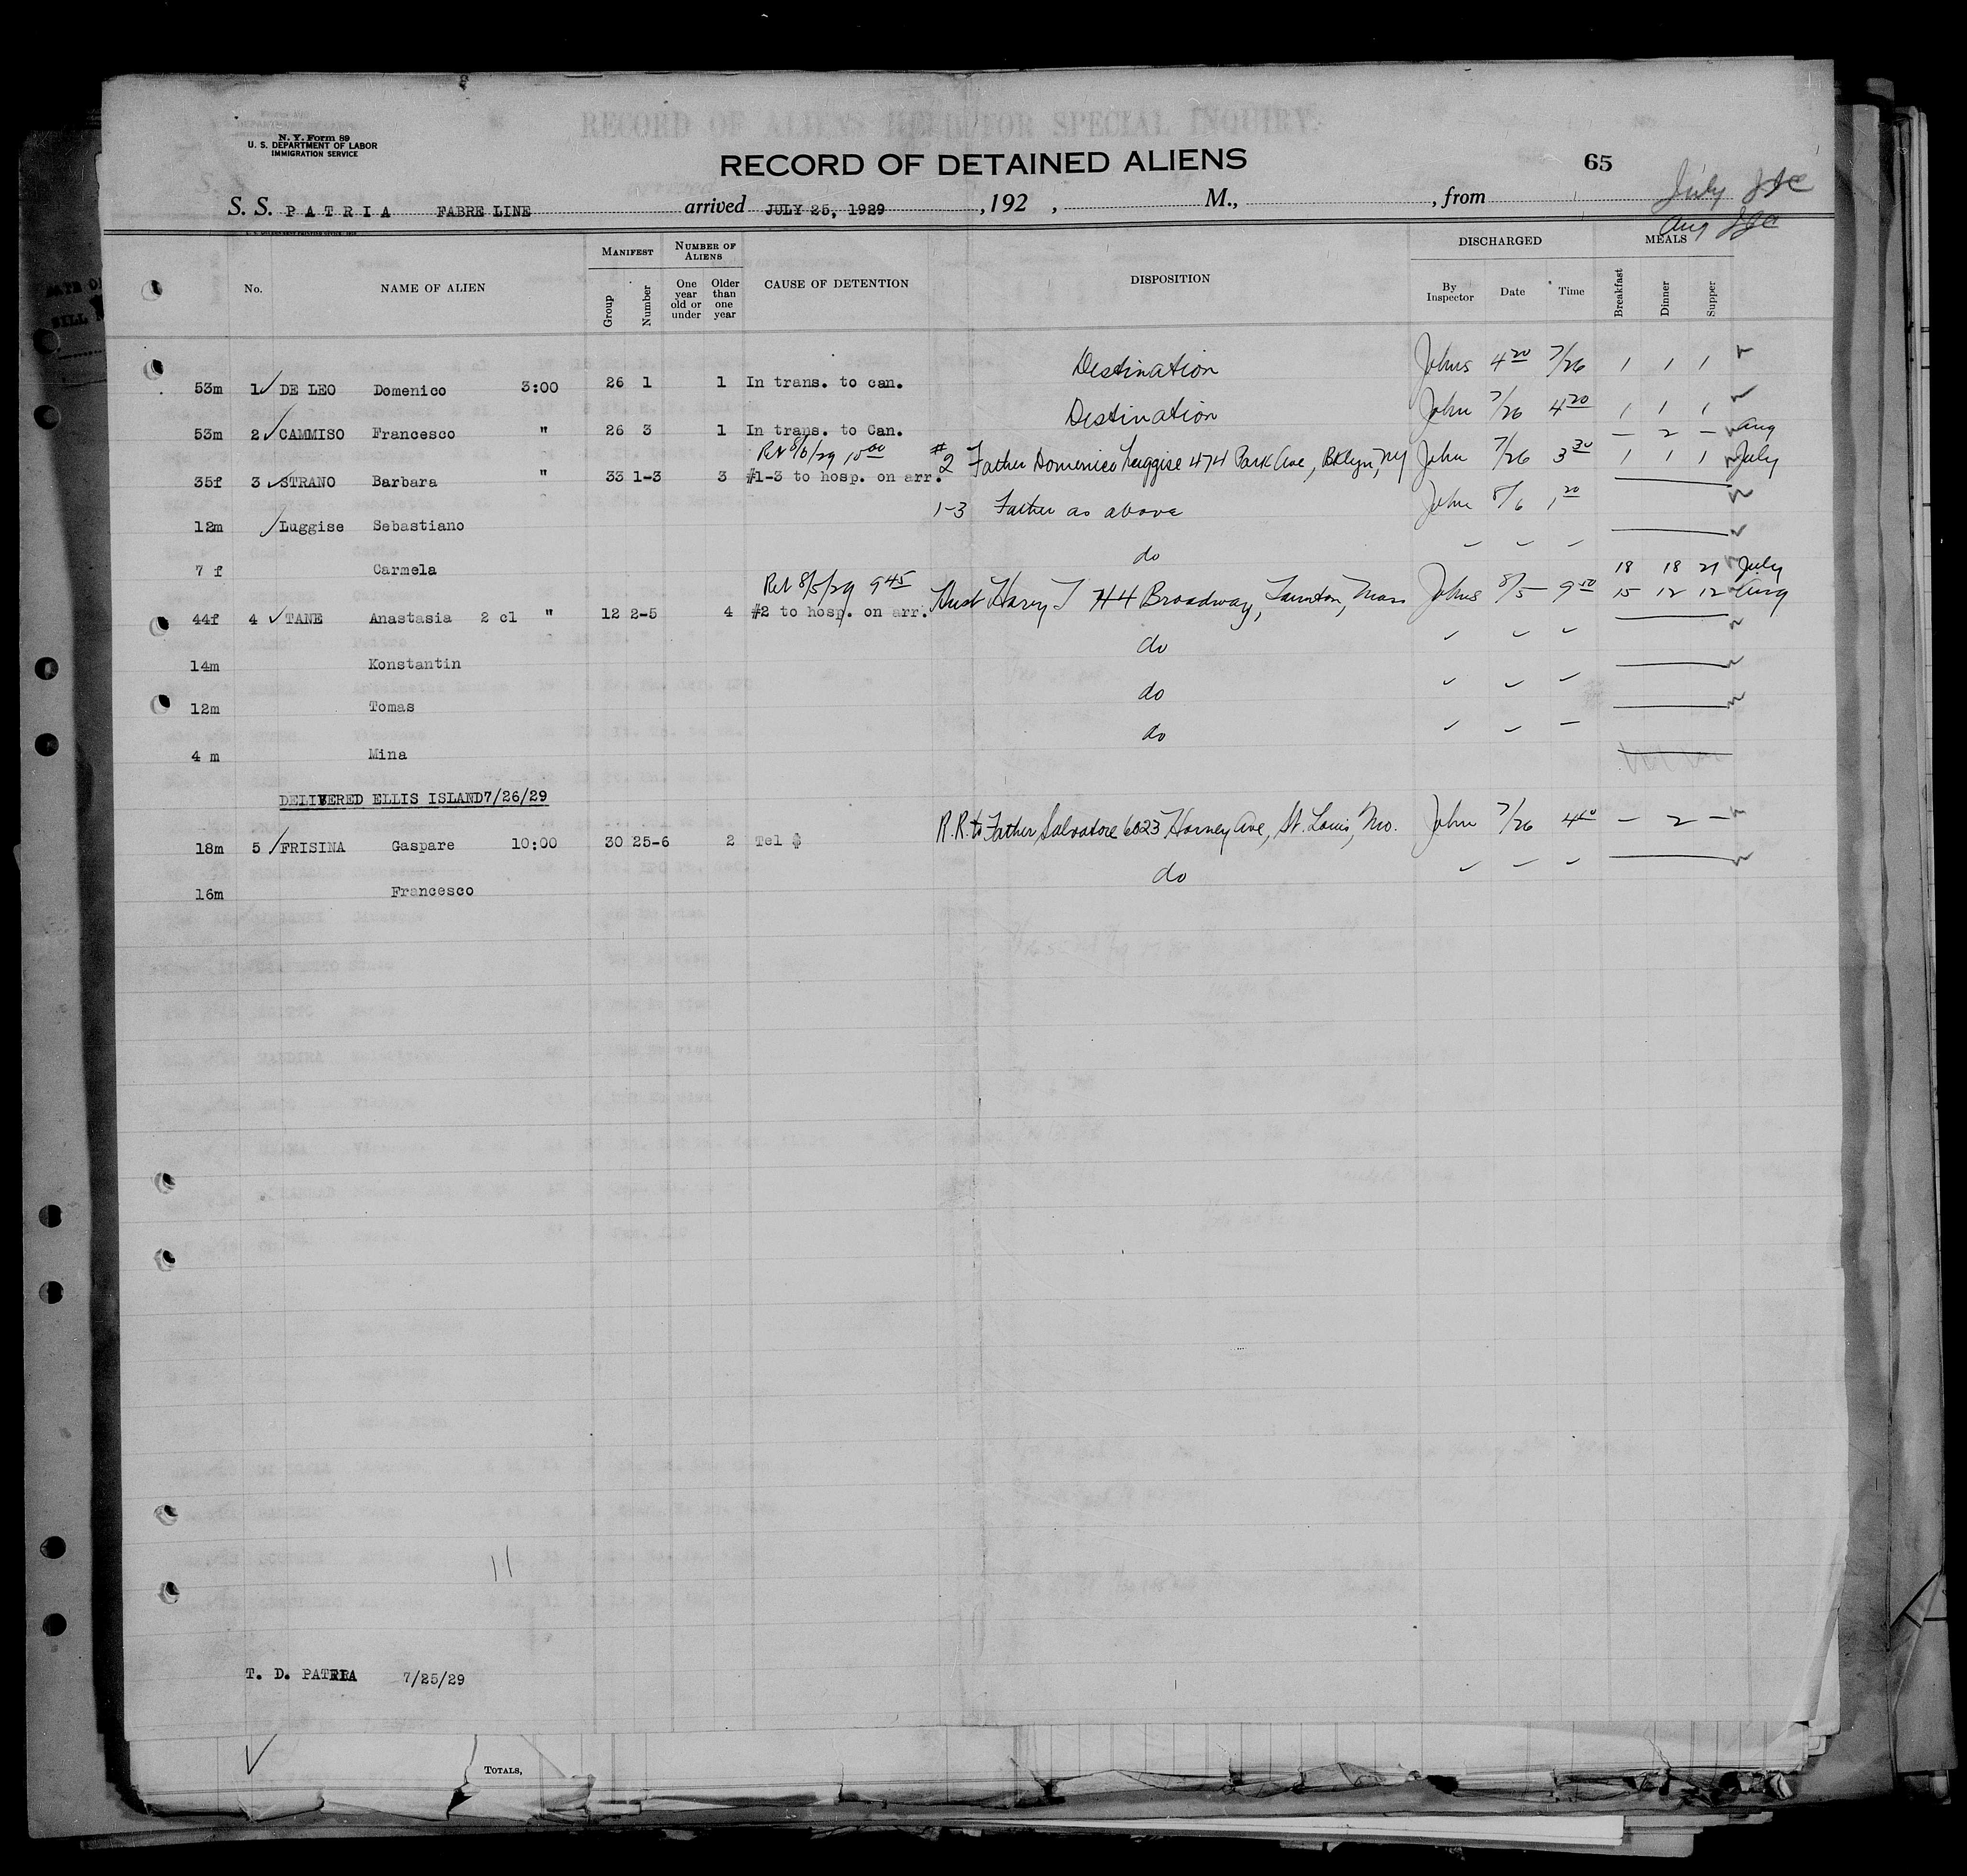 RECORD OF ALIENS HELD FOR SPECIAL INQUIRY.
N. Y. Form 89
U. S. DEPARTMENT OF LABOR
IMMIGRATION SERVICE
RECORD OF DETAINED ALIENS 65
July
S. S. PATRIA FABRE LINE arrived JULY 25, 1929 , 192 , M., , from
Aug
No. NAME OF ALIEN MANIFEST Group Number NUMBER OF ALIENS One year old or under Older than one year CAUSE OF DETENTION DISPOSITION DISCHARGED By Inspector Date Time MEALS Breakfast Dinner Supper
53m 1 DE LEO Domenico 3:00 26 1 1 In trans. to can. Destination Johns 4 20 7/26 1 1 1
53m 2 CAMMISO Francesco " 26 3 1 In trans. to Can. Destination John 7/26 4 20 1 1 1
Ret 8/6/29 10 00 — 2 — Aug
35f 3 STRANO Barbara " 33 1-3 3 #1-3 to hosp. on arr. #2 Father Domenico Luggise 474 Park Ave, Bklyn, NY John 7/26 3 30 1 1 1 July
12m Luggise Sebastiano 1-3 Father as above John 8/6 1 20
7 f Carmela do
Ret 8/5/29 9 45 18 18 21 July
44f 4 TANE Anastasia 2 cl " 12 2-5 4 #2 to hosp. on arr. Hust Harry T 44 Broadway, Taunton, Mass Johns 8/5 9 50 15 12 12 Aug
14m Konstantin do
12m Tomas do
4 m Mina do
DELIVERED ELLIS ISLAND 7/26/29
18m 5 FRISINA Gaspare 10:00 30 25-6 2 Tel $ R.R. to Father Salvatore 6023 Horney Ave, St. Louis, Mo. John 7/26 4 40 — 2 —
16m Francesco do
11
T. D. PATRIA 7/25/29
TOTALS,